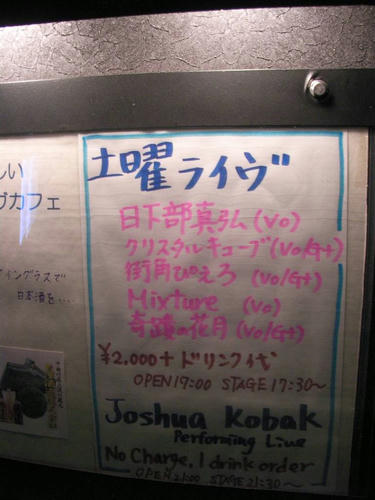 しい
ブカフェ
イングラスで
日本酒を...
土曜ライヴ
日下部真弘(Vo)
クリスタルキューブ(Vo/G+)
街角ぴえろ (Vo/G+)
Mixture (Vo)
奇蹟の花月(Vo/G+)
¥2,000+ドリンク代
OPEN 19:00 STAGE 17:30~
Joshua Kobak
Performing Live
No Charge, 1 drink order
OPEN 21:00 STAGE 21:30~